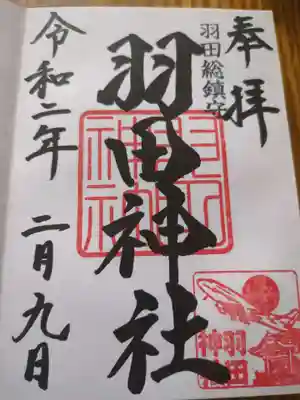 奉拝
羽田総鎮守
羽田神社
羽田神社
令和二年 二月九日
羽田
神社